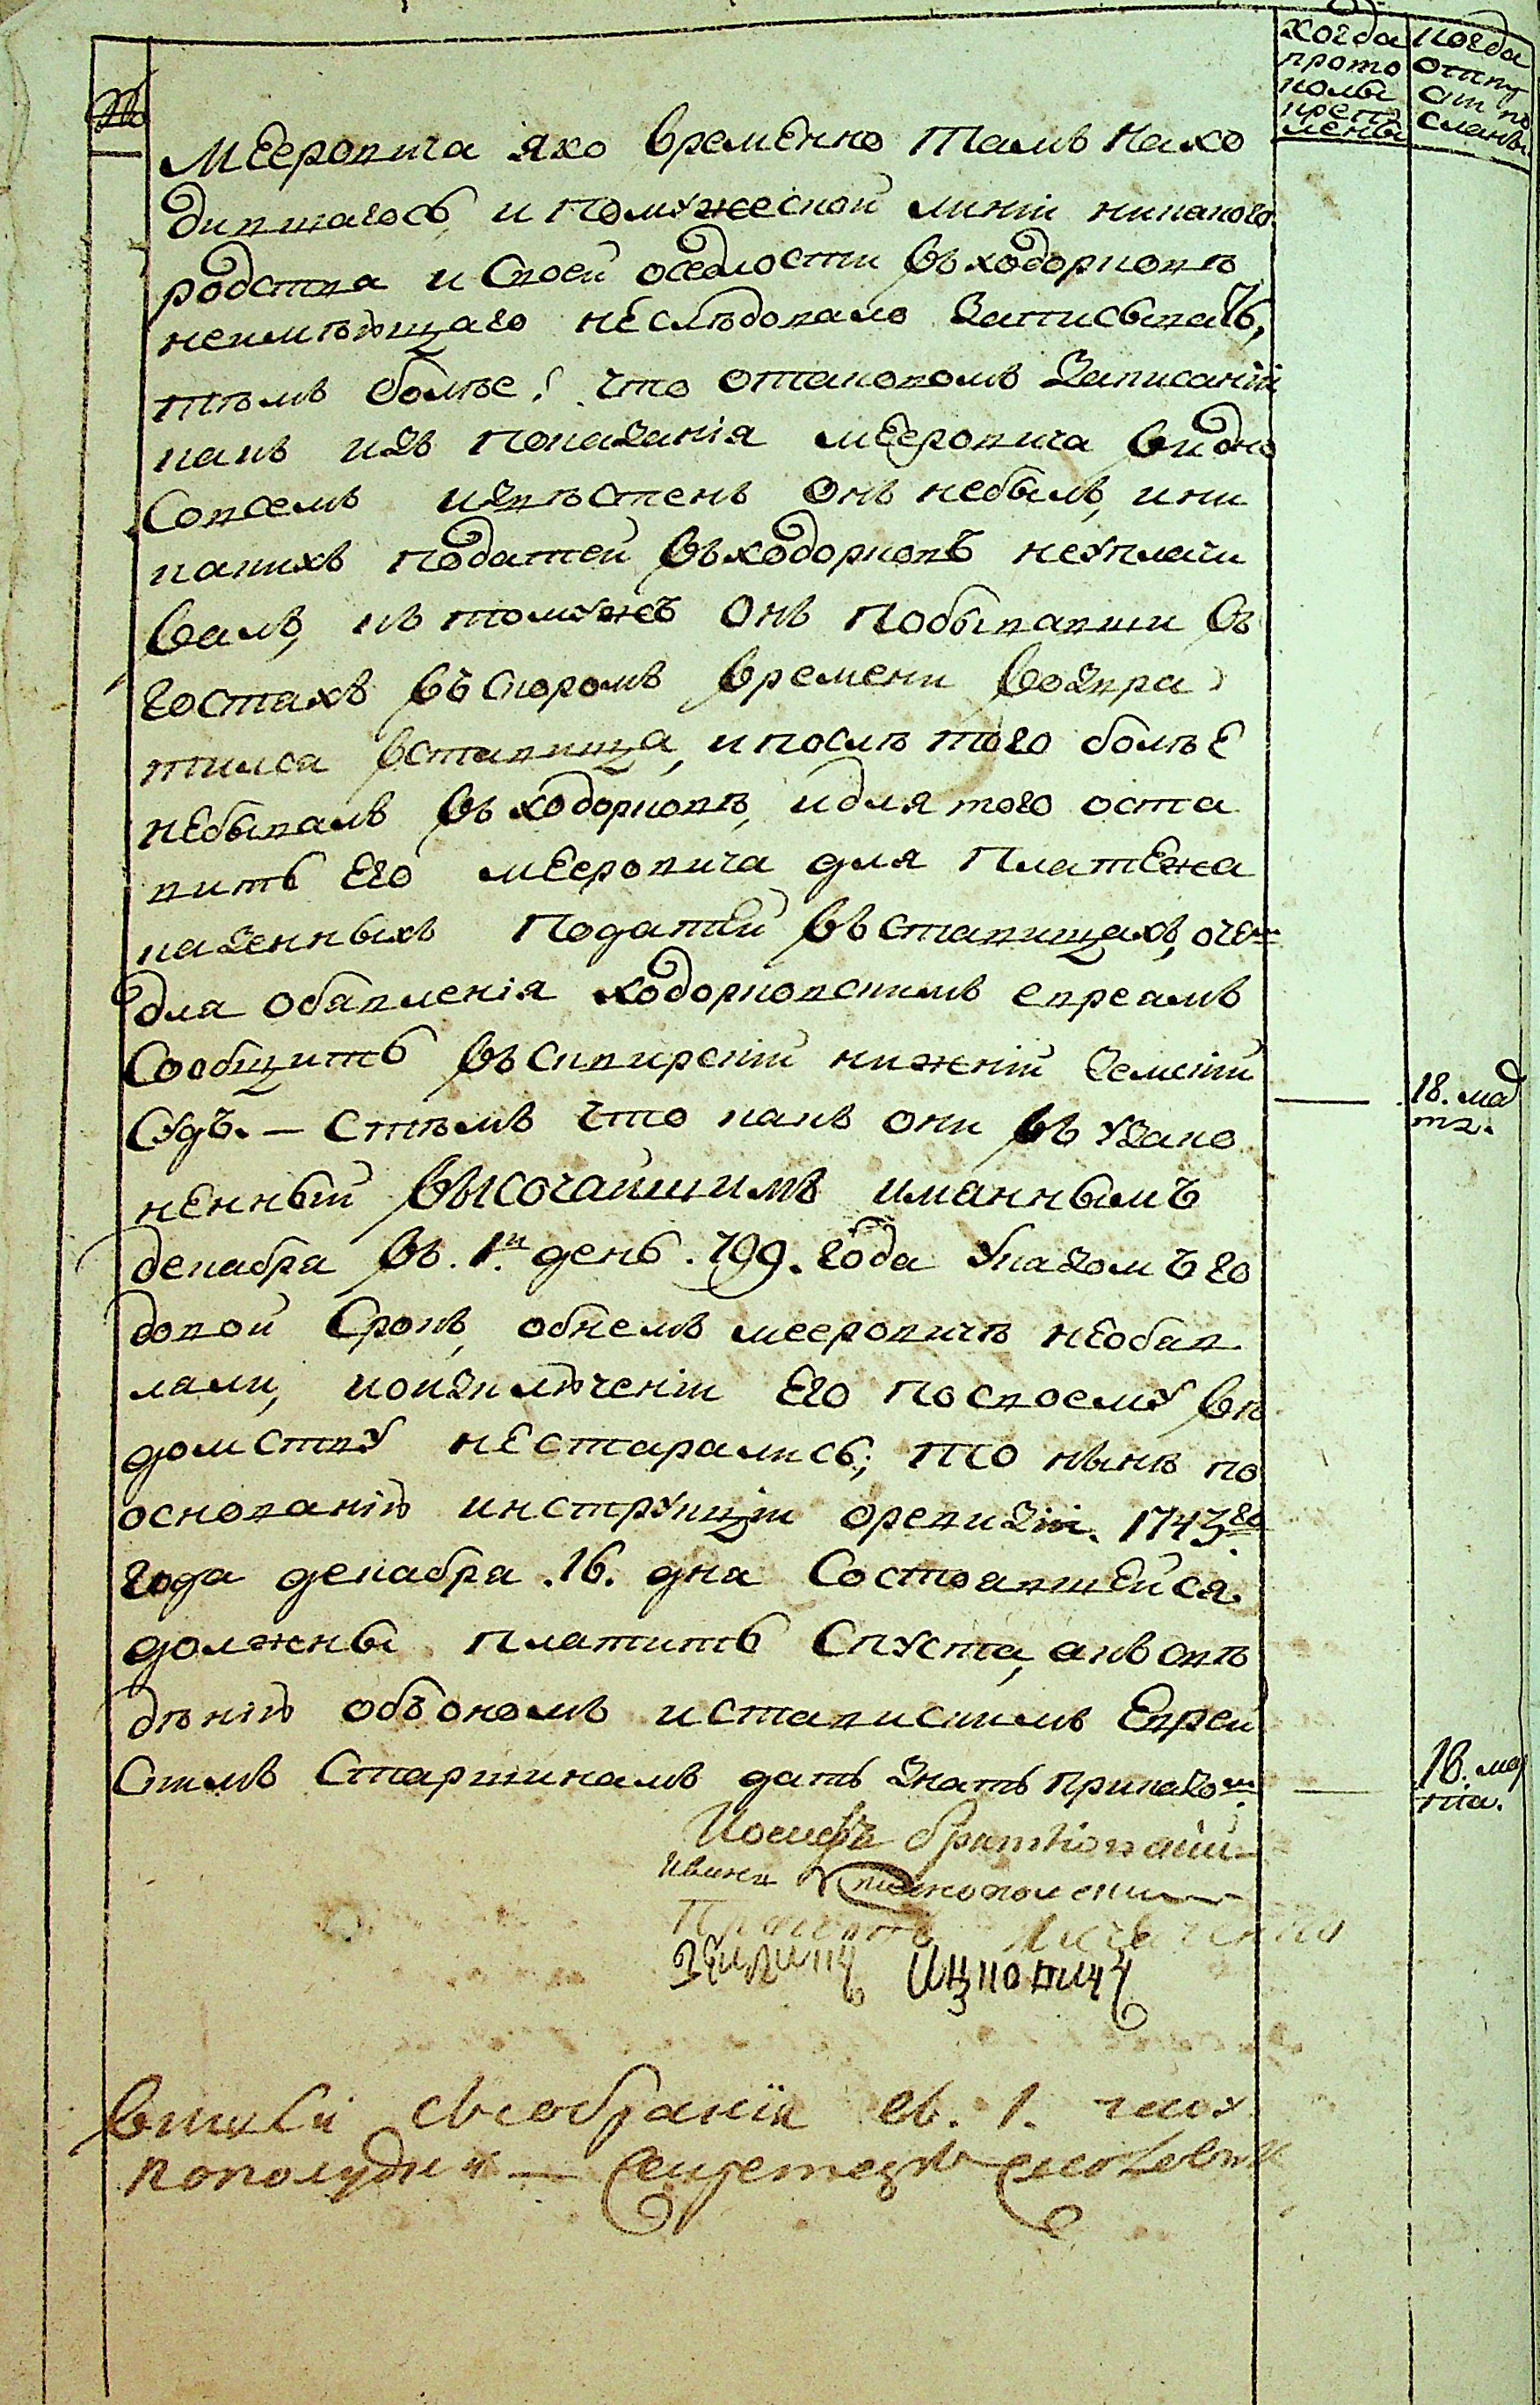 №
Когда
прото
колы
преп
лены
Когда
отпу
ски по
сланы
Мееровича яко временно тамъ нахо
дившагось, и помужеской линіи никакого
родства и своей оседлости въ ходорковѣ
неимѣющаго неслѣдовало записывать,
тѣмъ болѣе! что отаковомъ записаніи
какъ изъ показанія мееровича видно
совсемъ извѣстенъ онъ небылъ, ини
какихъ податей въ ходорковѣ неуплачи
валъ, къ томужъ онъ побывавши въ
гостахъ въ скоромъ времени возвра
тилса вставища, и послѣ того болѣе
небывалъ въ ходорковѣ, идля того оста
вить его мееровича для платежа
казенныхъ податей въ ставищахъ, очем
для обавленія ходорковскимъ евреамъ
сообщить въ сквирскій нижній земскій
судъ. — стѣмъ что какъ они въ узако
ненный высочайшимъ имяннымъ
декабра въ. 1й день. 799. года указомъ го
довой срокъ, обнемъ мееровичѣ необав
лали, иоизключеніи его посвоему вѣ
домству нестарались; то нынѣ по
основанію инструкціи оревизіи. 1743го
года декабра .16. дна состоавшейся.
должны платить спуста, акъ свѣ
дѣнію объономъ иставискимъ еврей
скимъ старшинамъ дать знать приказом
18. мар
та.
18. мар
та.
Иосифъ
Ицковичъ
въ. 1. часу
пополудни —